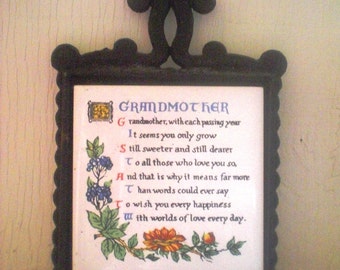 GRANDMOTHER
Grandmother, with each passing year
It seems you only grow
Still sweeter and still dearer
To all those who love you so,
And that is why it means far more
Than words could ever say
To wish you every happiness
With worlds of love every day.